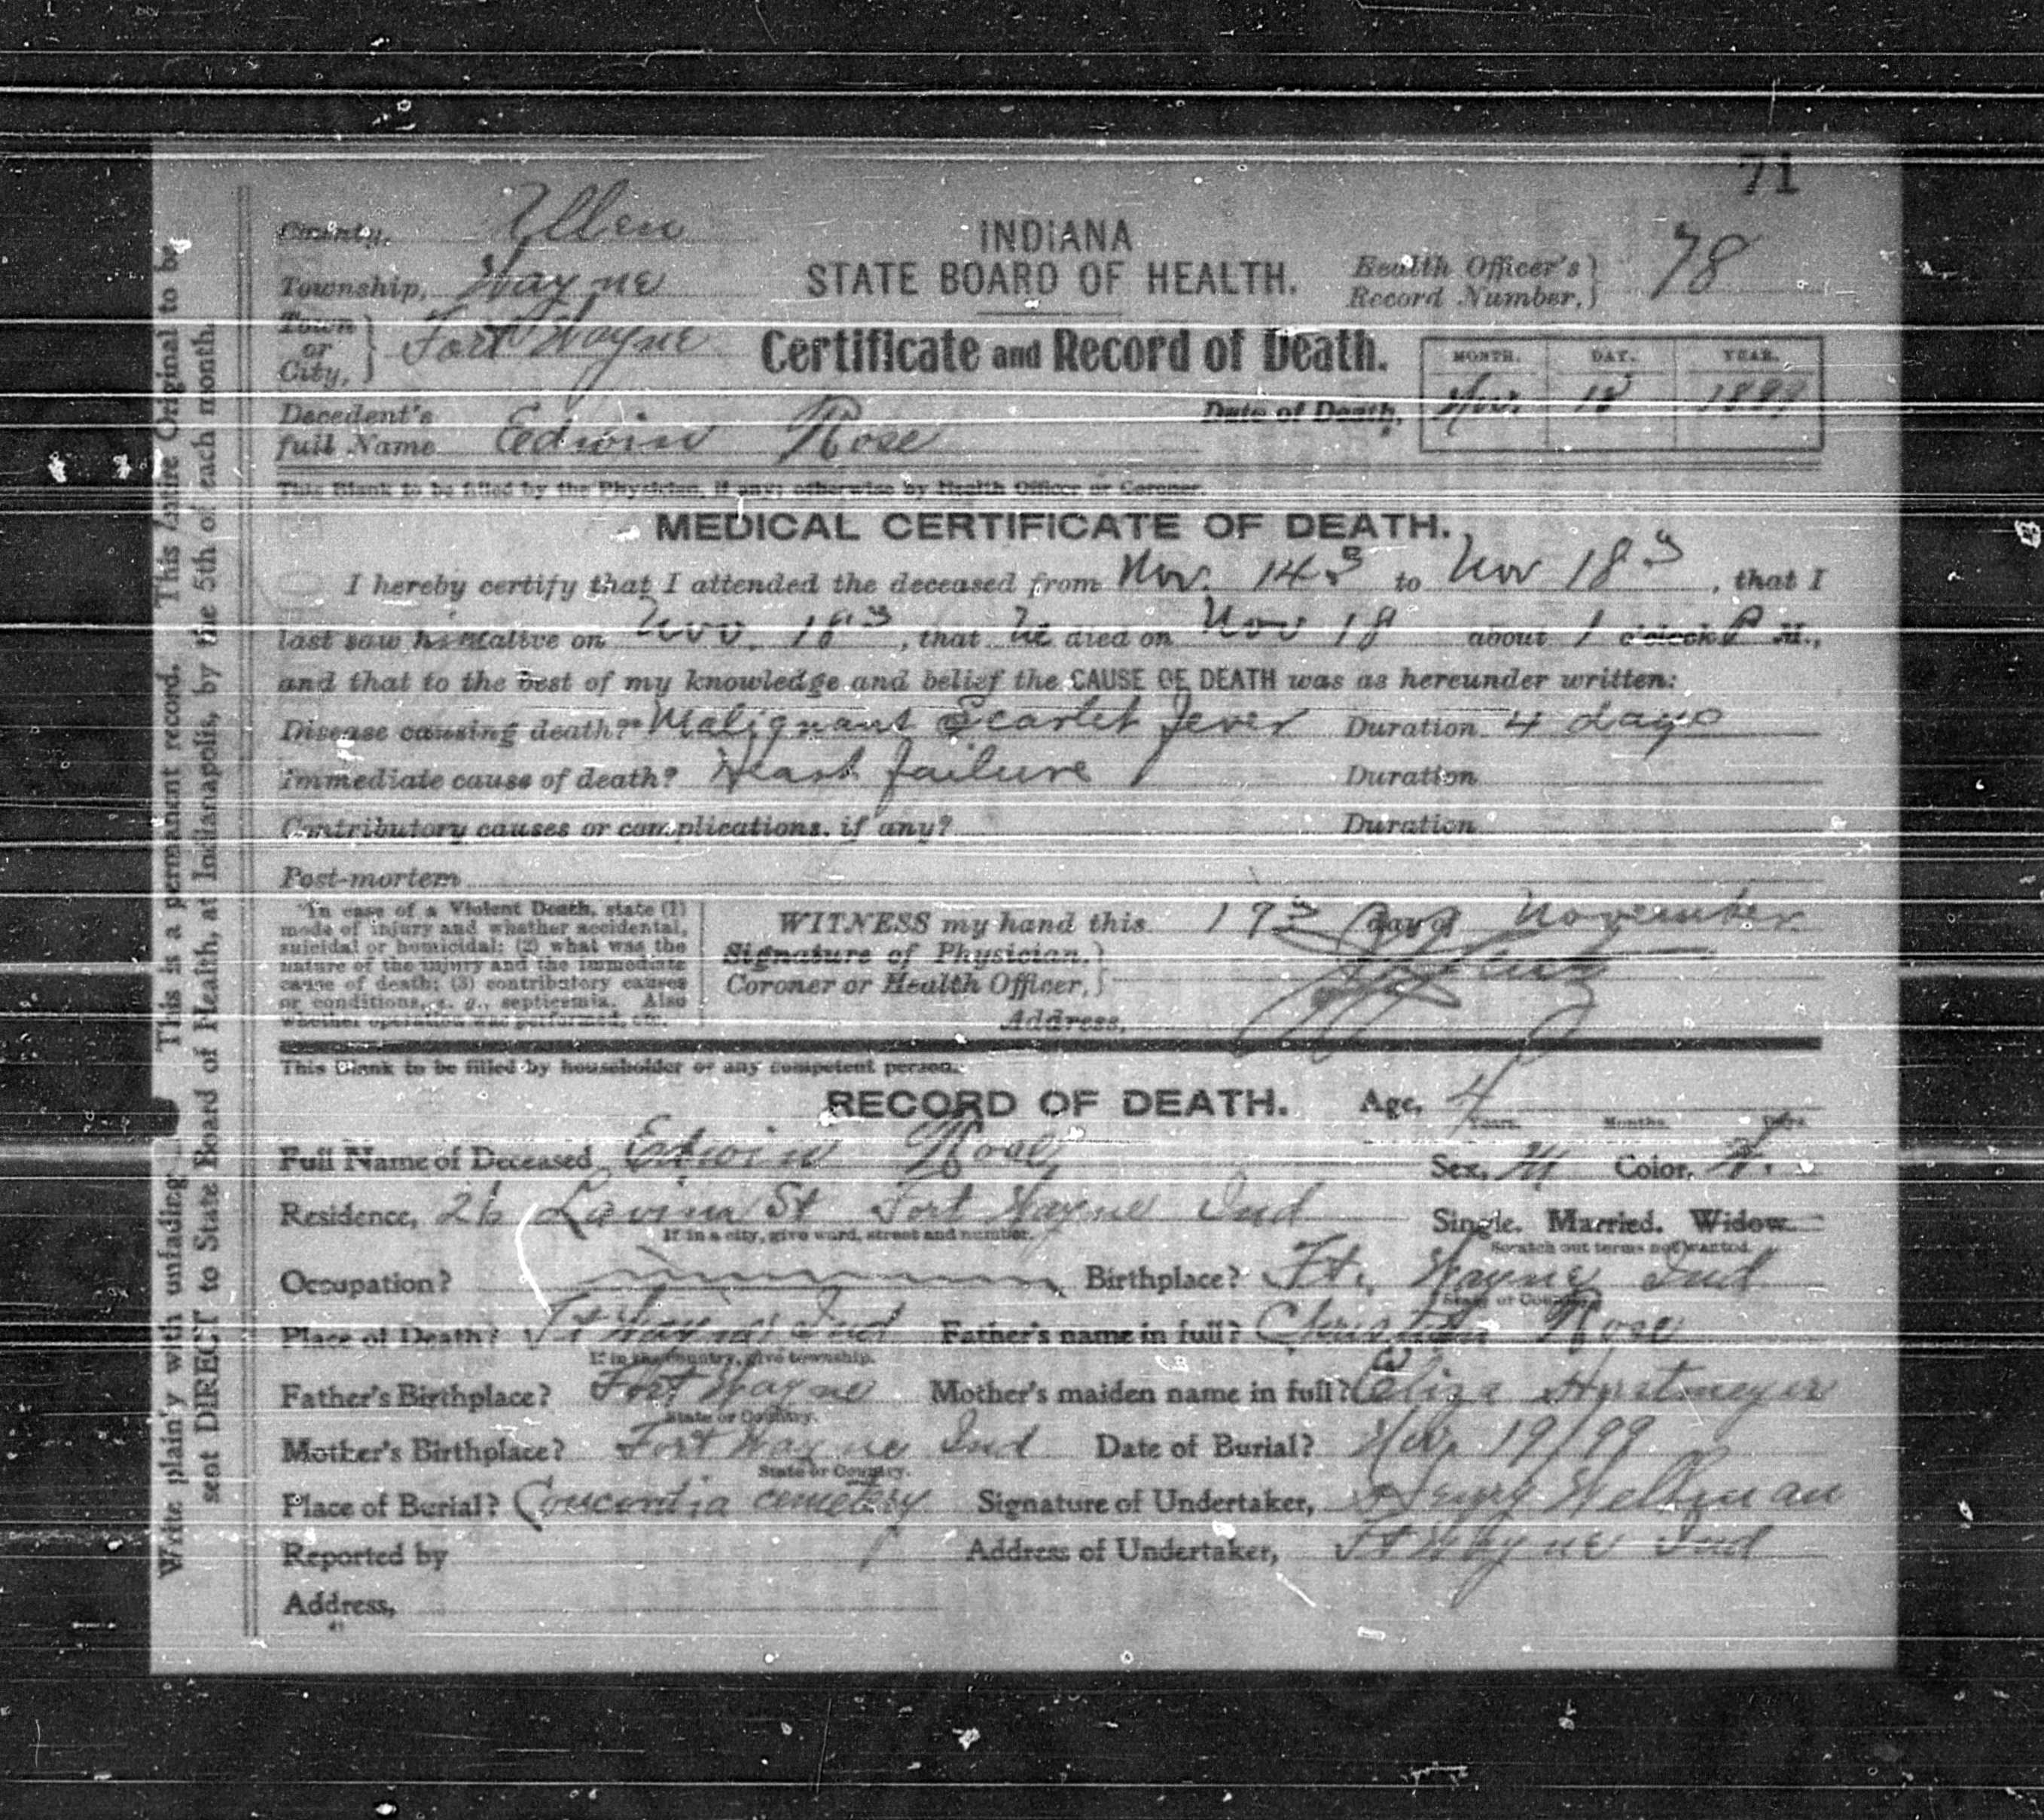 71
County, Allen
INDIANA
Township, Wayne
STATE BOARD OF HEALTH.
Health Officer's Record Number, 78
Town or City, Fort Wayne
Certificate and Record of Death.
MONTH. DAY. YEAR.
Decedent's full Name Edwin Rose
Date of Death, Nov. 18 1899
This Blank to be filled by the Physician, if any; otherwise by Health Officer or Coroner.
MEDICAL CERTIFICATE OF DEATH.
I hereby certify that I attended the deceased from Nov. 14 to Nov 18, that I
last saw him alive on Nov. 18, that he died on Nov 18 about 1 o'clock P M.,
and that to the best of my knowledge and belief the CAUSE OF DEATH was as hereunder written:
Disease causing death?* Malignant Scarlet fever Duration 4 days
Immediate cause of death? Heart failure Duration
Contributory causes or complications, if any? Duration
Post-mortem
*In case of a Violent Death, state (1)
mode of injury and whether accidental,
suicidal or homicidal; (2) what was the
nature of the injury and the immediate
cause of death; (3) contributory causes
or conditions, e. g., septicemia. Also
whether operation was performed, etc.
WITNESS my hand this 19 day of November
Signature of Physician,
Coroner or Health Officer,
Address,
This Blank to be filled by householder or any competent person.
RECORD OF DEATH. Age, 4
Years. Months. Days.
Full Name of Deceased Edwin Rose Sex, M Color, W.
Residence, 26 Lavina St Fort Wayne Ind Single. Married. Widow.
If in a city, give ward, street and number. Scratch out terms not wanted.
Occupation? Birthplace? Ft. Wayne Ind
State or Country.
Place of Death? Ft Wayne Ind Father's name in full? Christian Rose
If in the country, give township.
Father's Birthplace? Fort Wayne Mother's maiden name in full? Eliza
State or Country.
Mother's Birthplace? Fort Wayne Ind Date of Burial? Nov 19/99
State or Country.
Place of Burial? Concordia cemetery Signature of Undertaker, Henry Wellman
Reported by Address of Undertaker, Ft Wayne Ind
Address,
Write plainly with unfading This is a permanent record. This Entire Original to be
sent DIRECT to State Board of Health, at Indianapolis, by the 5th of each month.